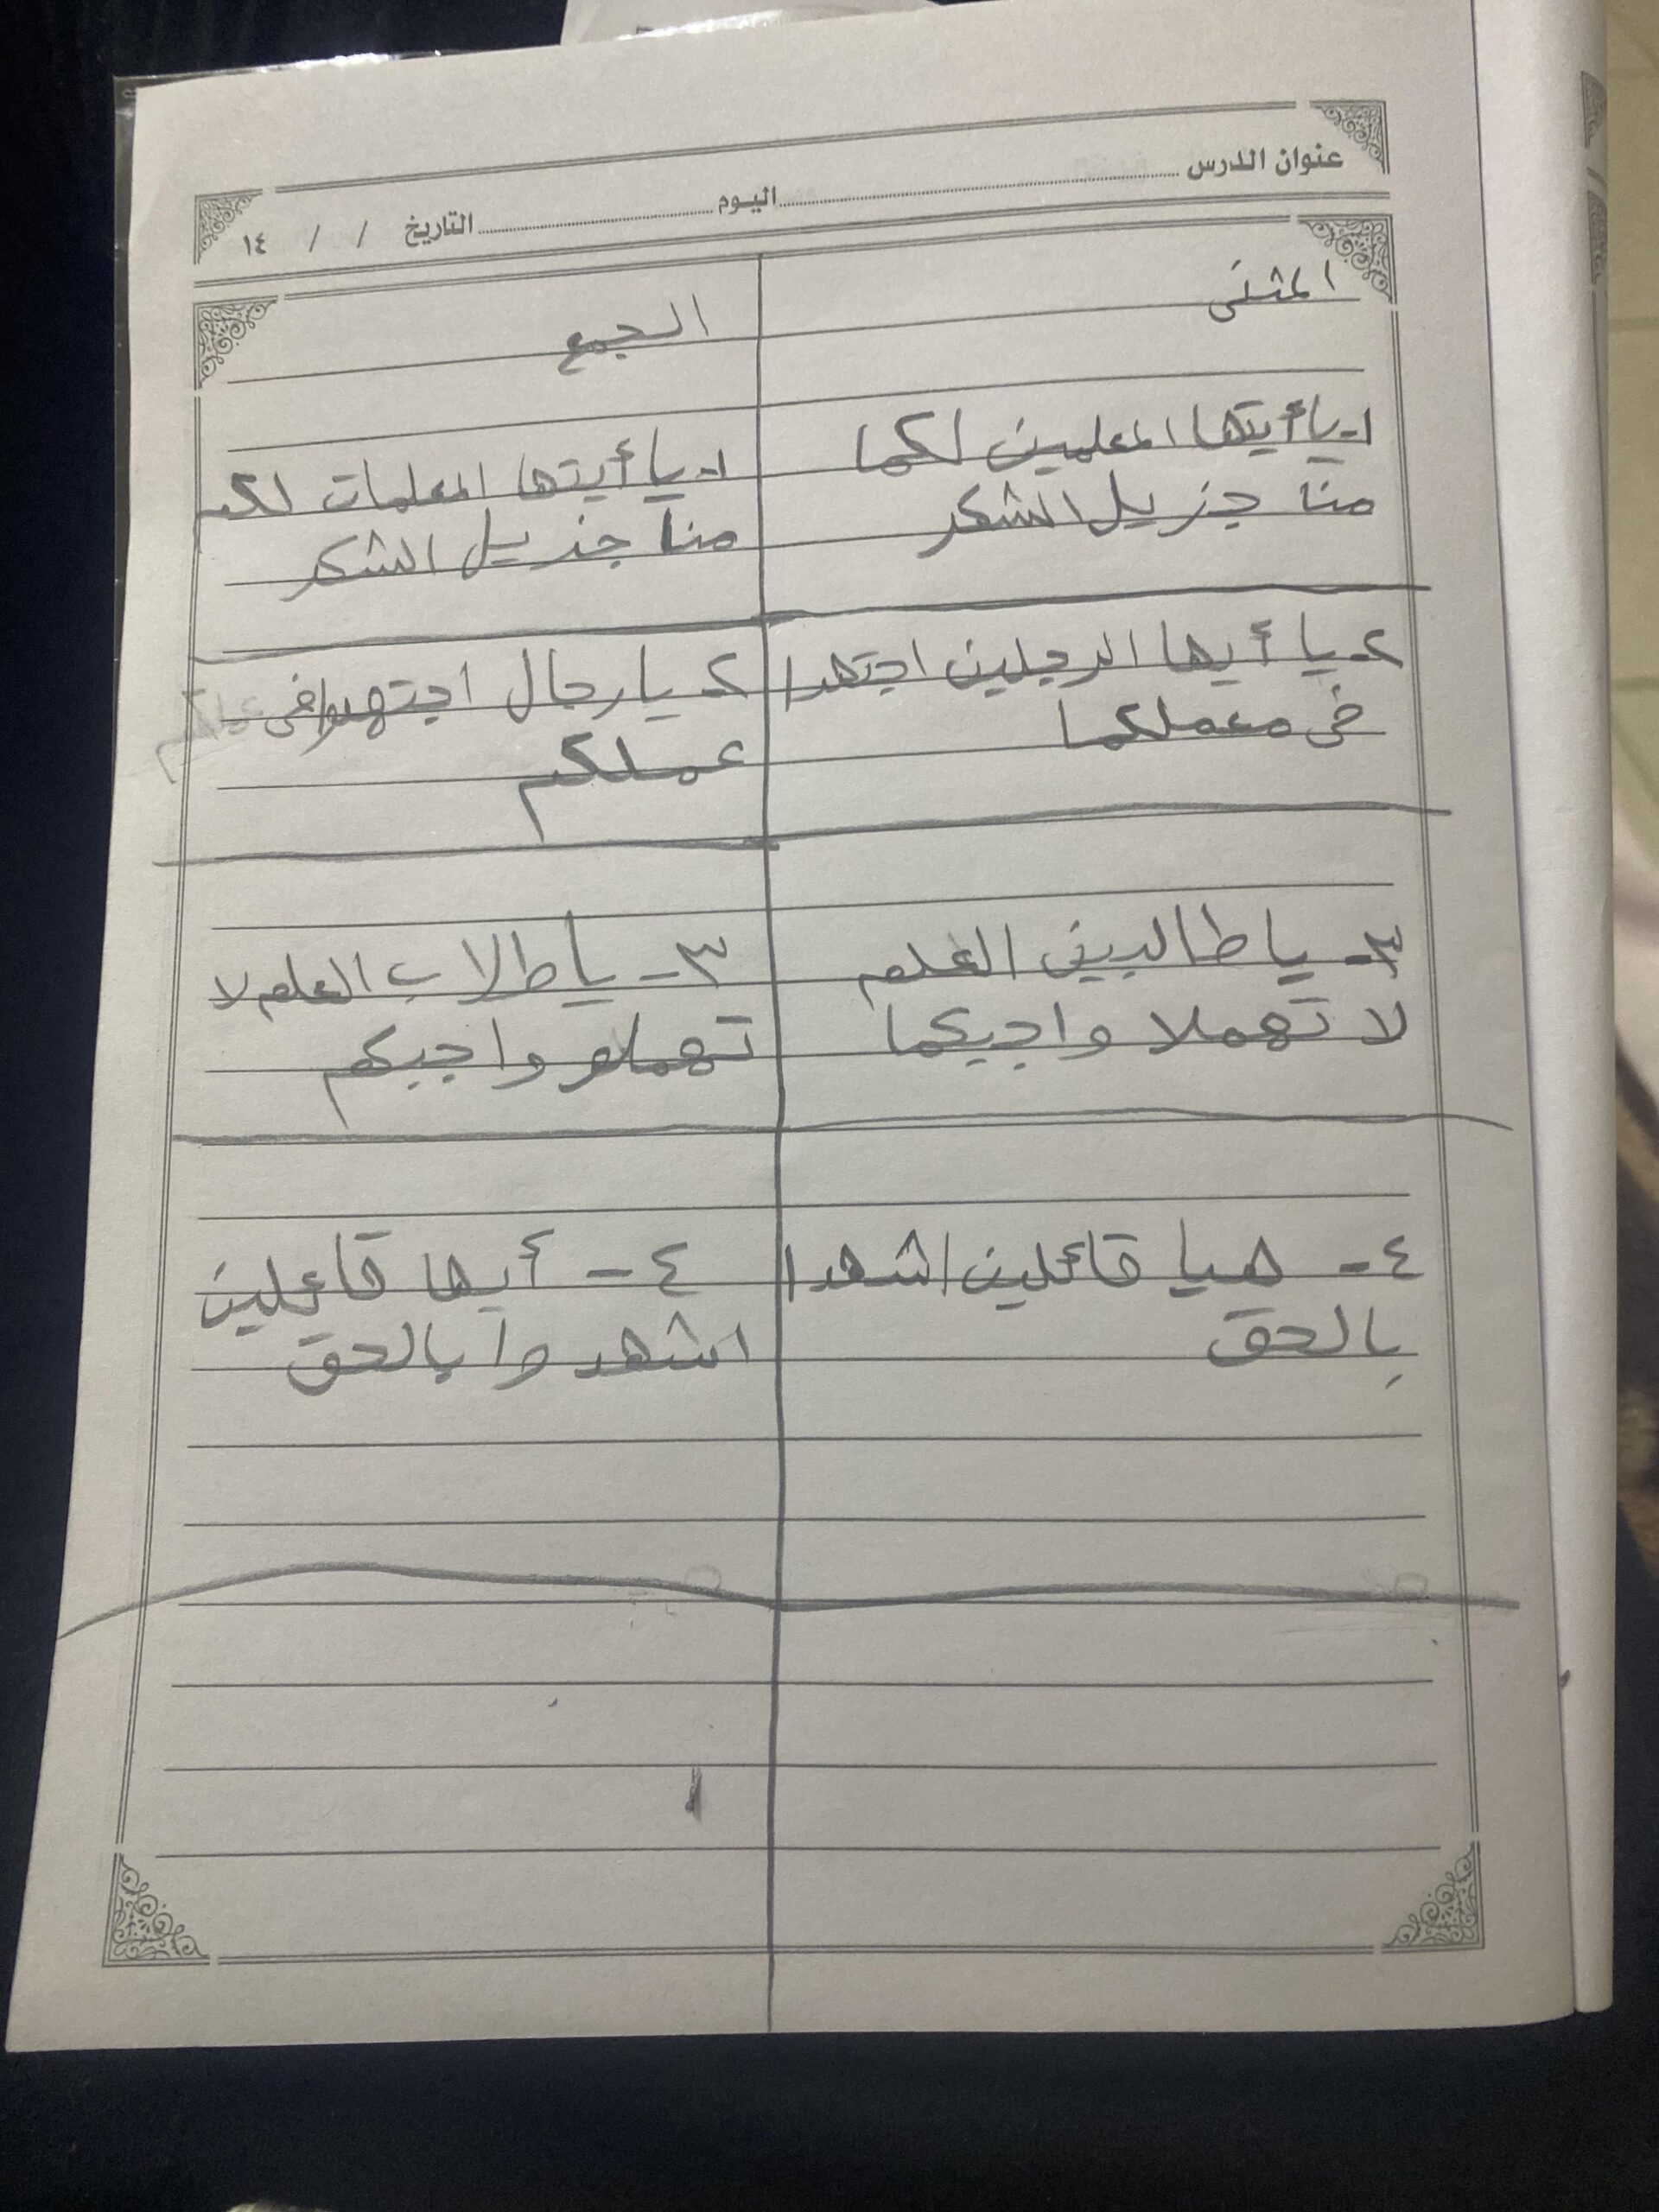 عنوان الدرس
اليوم
التاريخ / / ١٤
المثنى
الجمع
١- يا أيتها المعلمين لكما
منا جزيل الشكر
١- يا أيتها المعلمات لكم
منا جزيل الشكر
٢- يا أيها الرجلين اجتهدا
في معملكما
٢- يا رجال اجتهدوا في
عملكم
٣- يا طالبين العلم
لا تهملا واجبكما
٣- يا طلاب العلم لا
تهملو واجبكم
٤- هيا قائلين اشهدا
بالحق
٤- أيها قائلين
اشهدوا بالحق